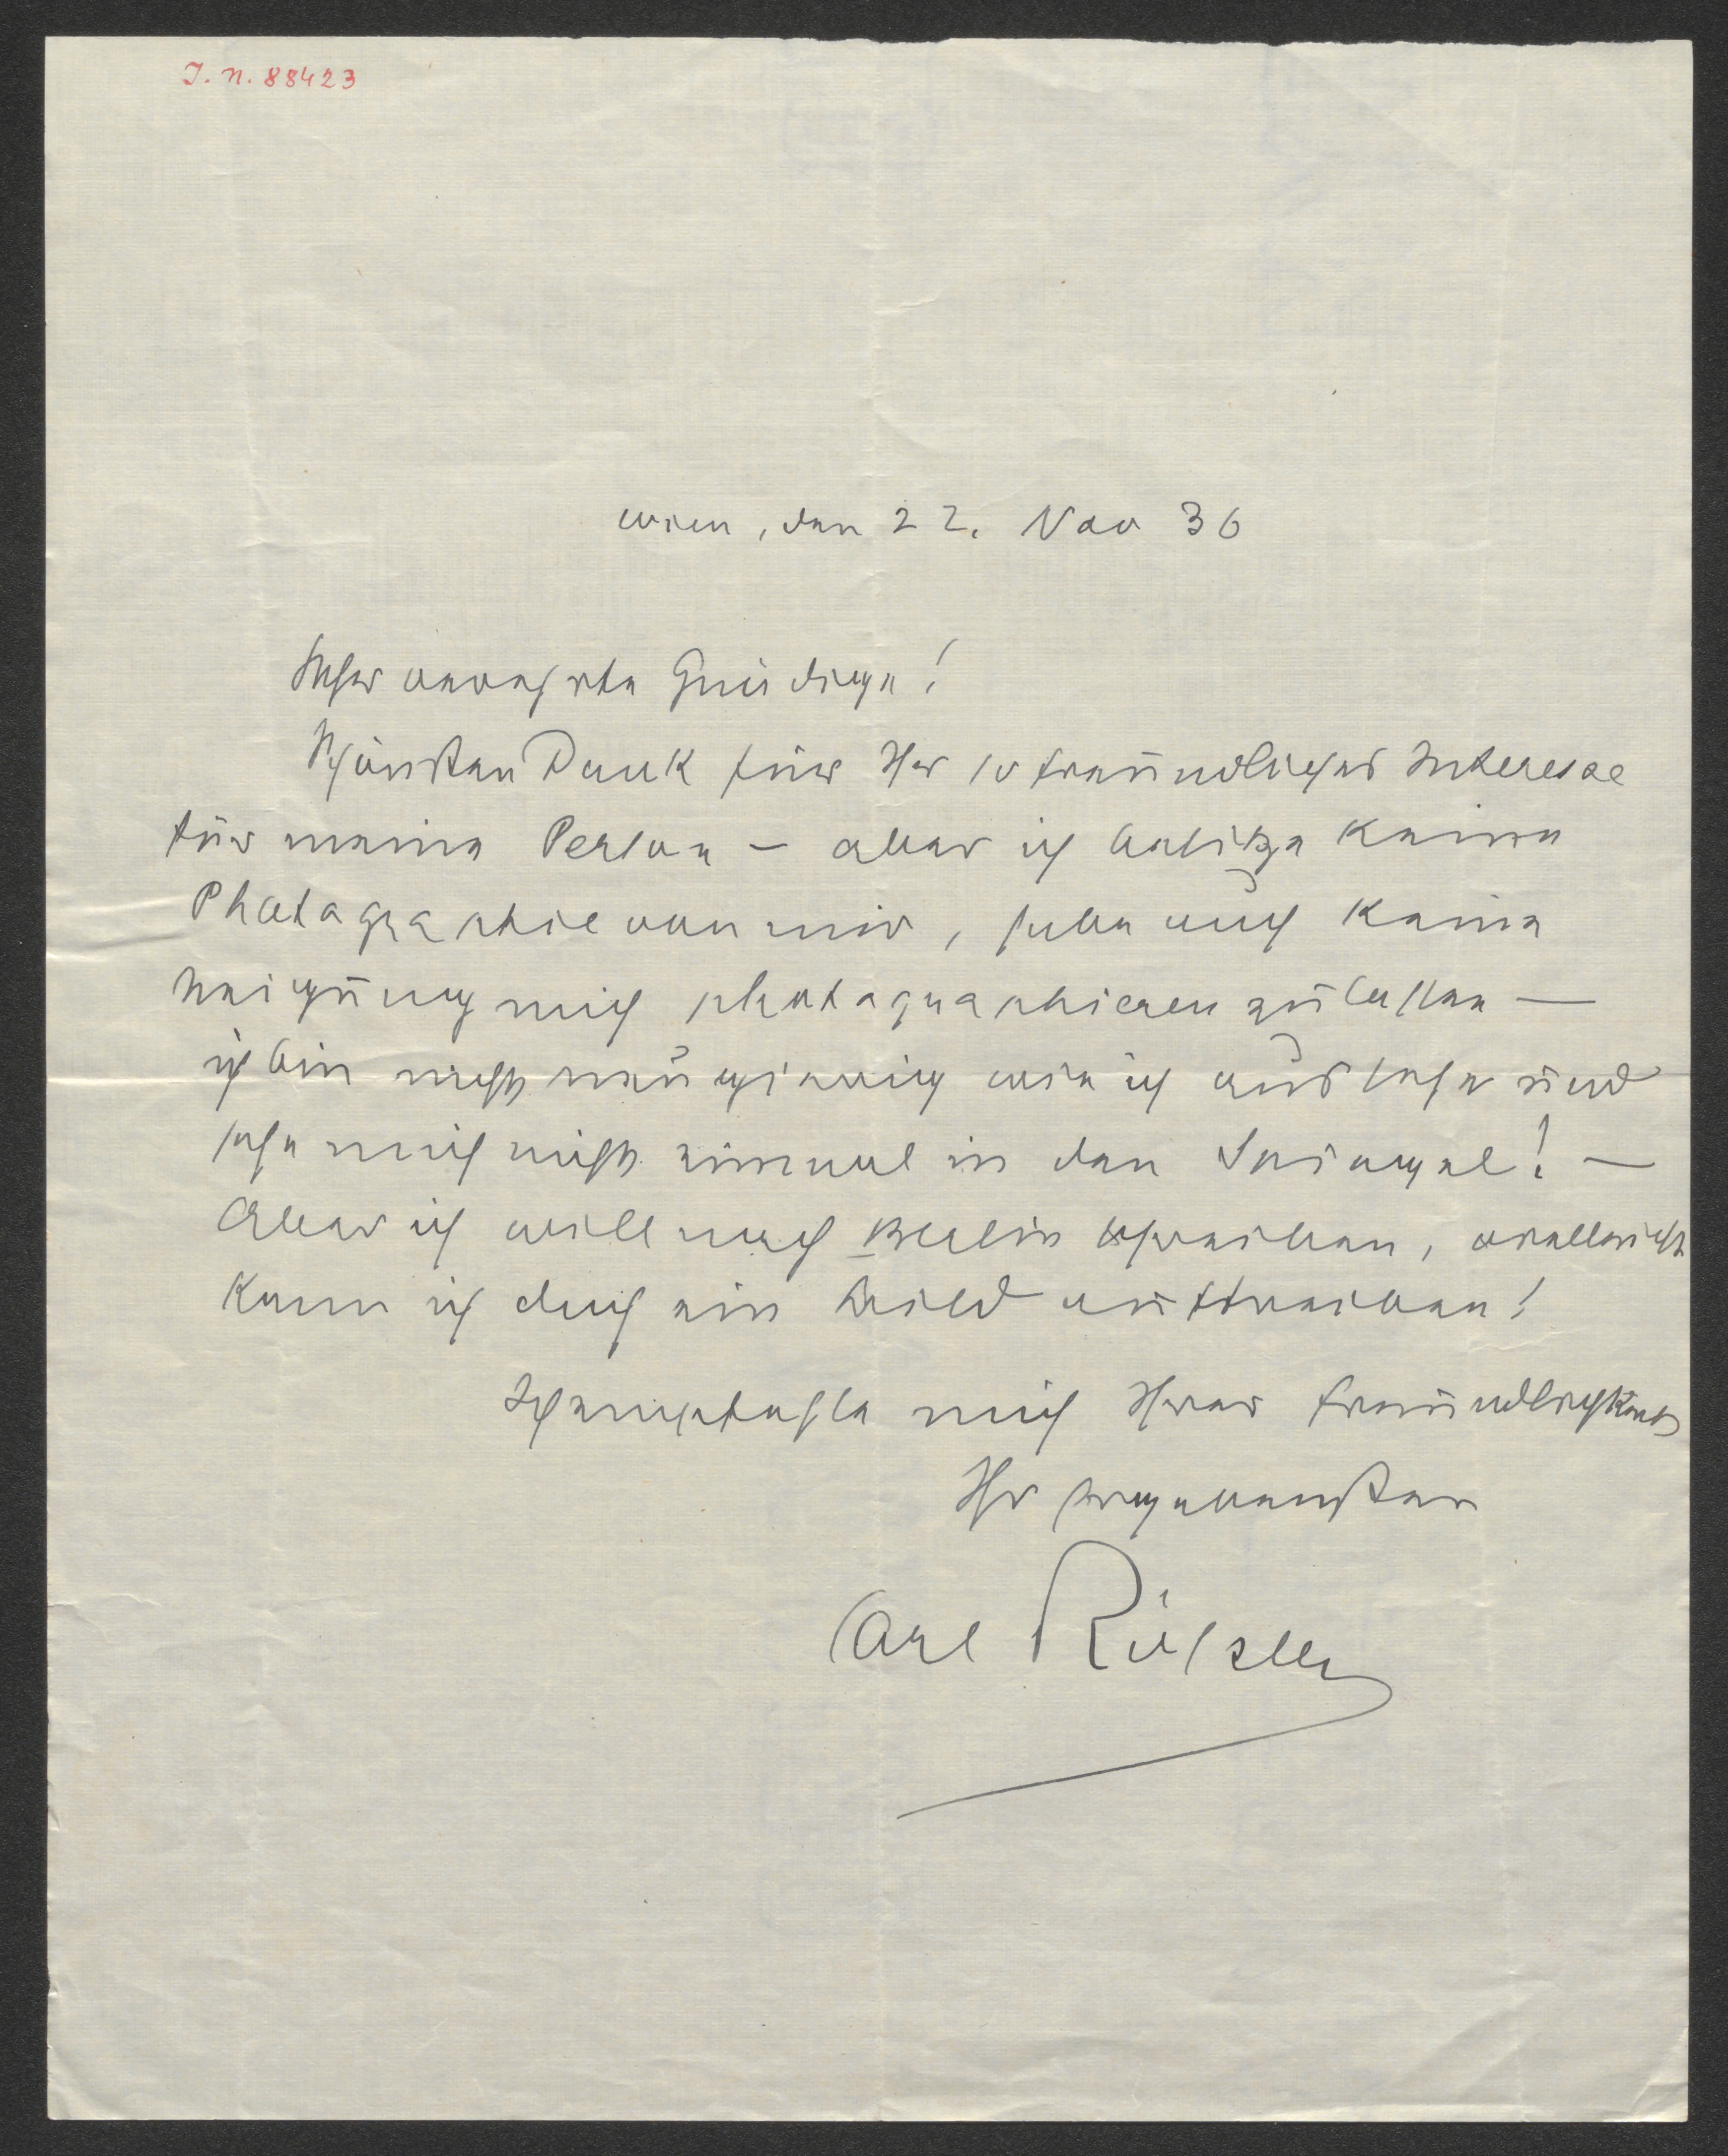 J. N. 88423
Wien, den 22. Nov 36
Sehr verehrte Gnädige!
Schönsten Dank für Ihr so freundliches Interesse
für meine Person – aber ich besitze keine
Photographie von mir, habe auch keine
Neigung mich photographieren zu lassen –
ich bin nicht neugierig wie ich aussehe und
sehe mich nicht einmal in den Spiegel! –
Aber ich will nach Berlin schreiben, vielleicht
kann ich doch ein Bild auftreiben!
Ich empfehle mich Ihrer Freundlichkeit
Ihr ergebenster
Carl Rössler